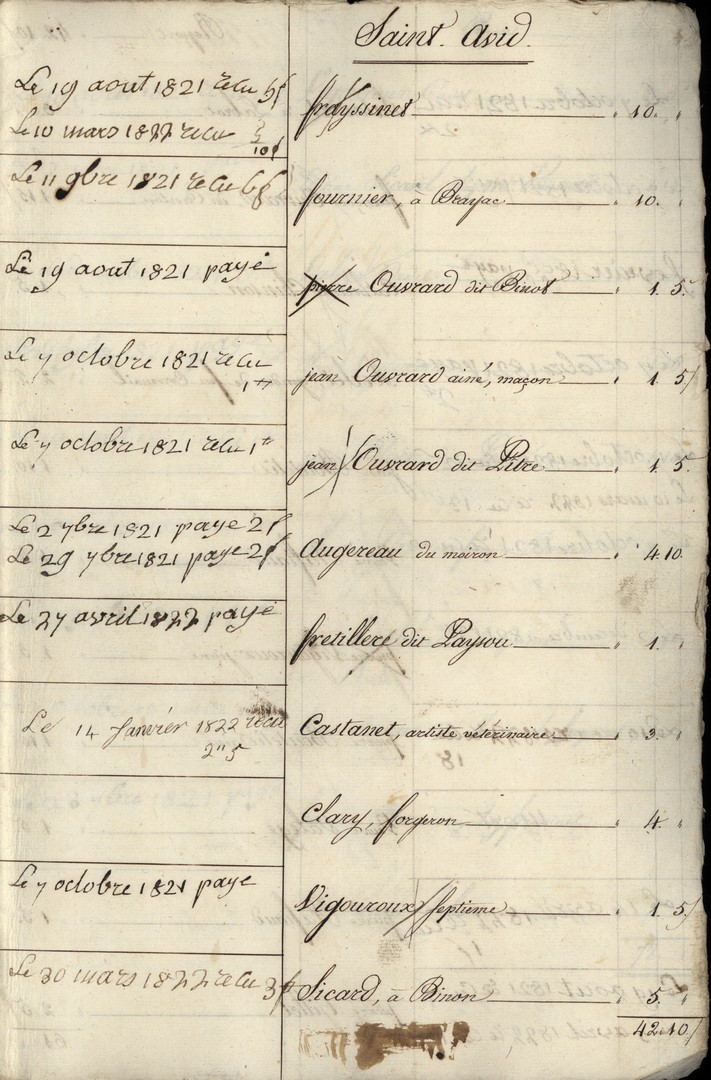 Saint. Avid.
Le 19 aout 1821 recu 5f
Le 10 mars 1822 recu 5
10f
frayssinet 10. "
Le 11 9bre 1821 recu 6f
fournier, à Brayac 10. "
Le 19 aout 1821 payé
pierre Ouvrard dit Binot " 1. 5.
Le 7 octobre 1821 recu
1tt
jean Ouvrard ainé, maçon " 1. 5
Le 7 octobre 1821 recu 1tt
jean Ouvrard dit Pitre " 1. 5.
Le 2 7bre 1821 paye 2f
Le 29 7bre 1821 paye 2f
Augereau du moiron " 4. 10.
Le 27 avril 1822 payé
fretillere dit Paysou " 1. "
Le 14 Janvier 1822 recu
2" 5
Castanet, artiste vétérinaire " 3. "
Clary, forgeron " 4. "
Le 7 octobre 1821 paye
Vigouroux septieme " 1. 5
Le 30 mars 1822 recu 3f
Sicard, à Binon " 5. "
42. 10